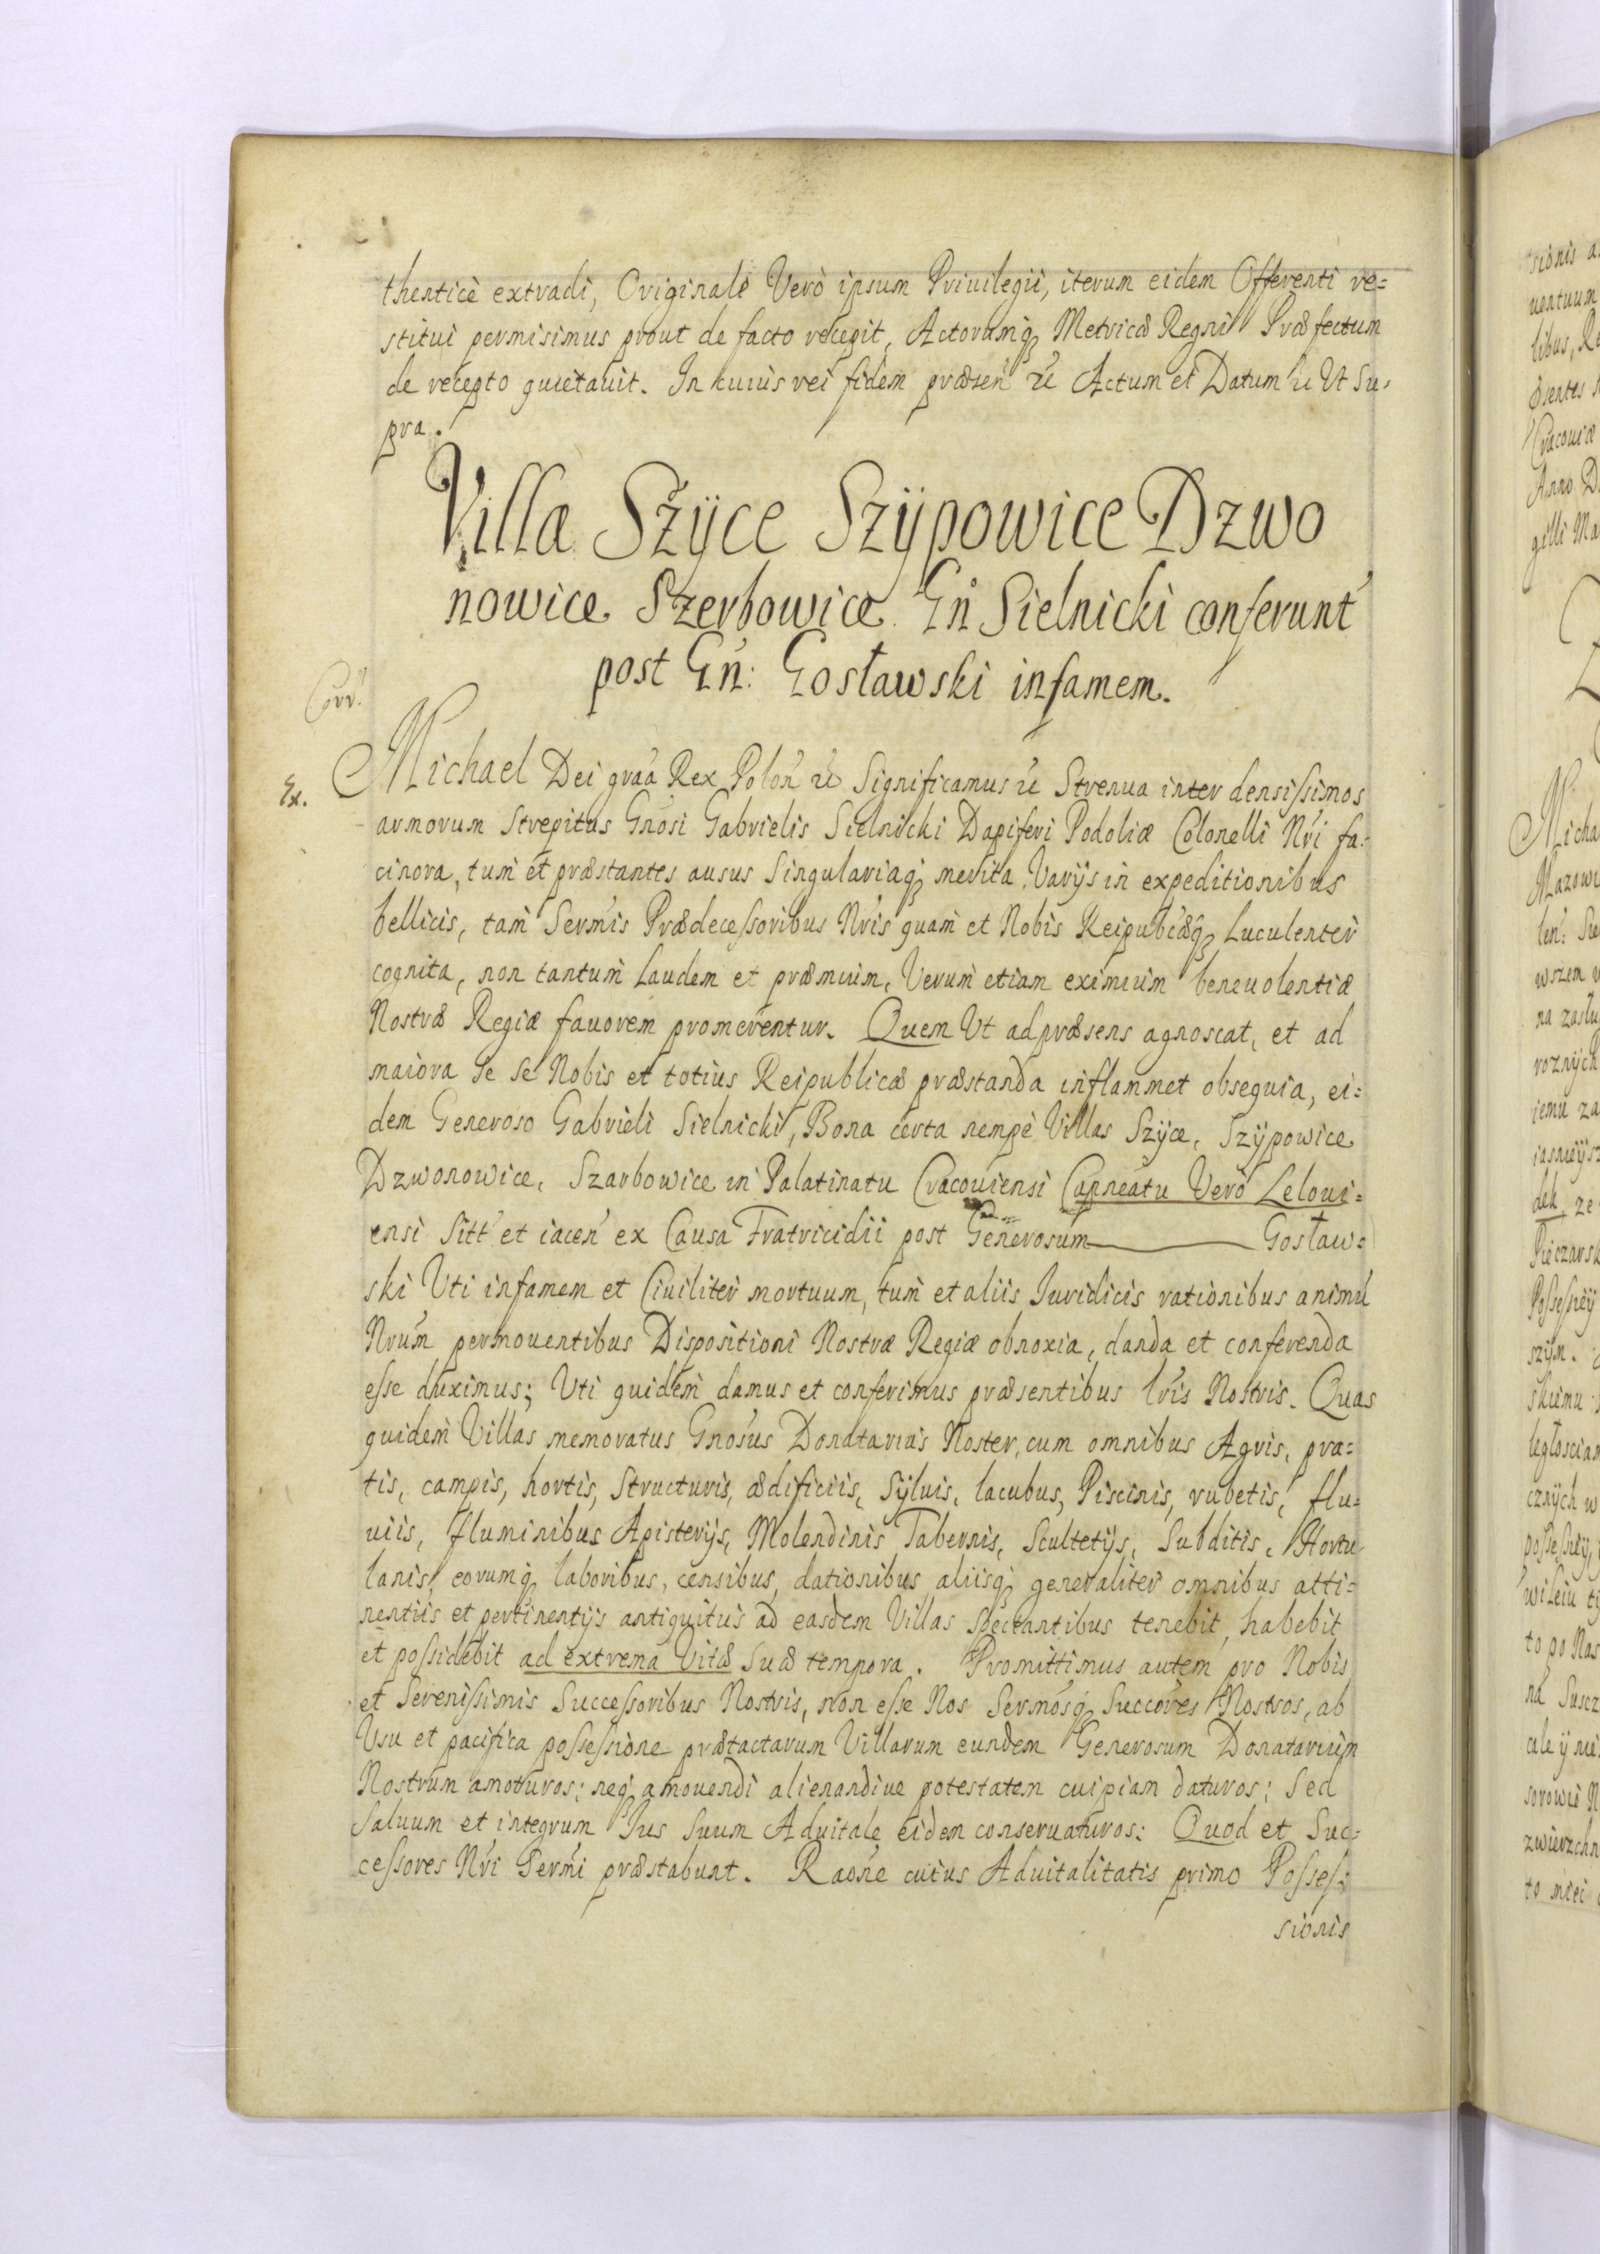 thenticè extradi, Originale Verò ipsum Priuilegii, iterum eidem Offerenti re=
stitui permisimus prout de facto recepit, Actorumq Metricæ Regni Præfectum
de recepto quietauit. In cuius rei fidem præsen etc Actum et Datum etc Ut Su=
pra.
Villæ Szÿce Szÿpowice Dzwo
nowice Szerbowice Gn̄ Sielnicki conferunt
post Gn̄: Gosławski infamem.
Corr.
Ex.
Michael Dei graa Rex Polon etc Significamus etc Strenua inter densissimos
armorum Strepitus Gnosi Gabrielis Sielnicki Dapiferi Podoliæ Colonelli Nri fa=
cinora, tum et præstantes ausus Singulariaq merita, Varÿs in expeditionibus
bellicis, tam Sermis Prædecessoribus Nris quam et Nobis Reipubcæq Luculenter
cognita, non tantum Laudem et præmium, Verum etiam eximium beneuolentiæ
Nostræ Regiæ fauorem promerentur. Quem Ut ad præsens agnoscat, et ad
maiora Se Se Nobis et totius Reipublicæ præstanda inflammet obsequia, ei=
dem Generoso Gabrieli Sielnicki, Bona certa nempè Villas Szÿce, Szÿpowice
Dzwonowice, Szarbowice in Palatinatu Cracouiensi Capneatu Verò Leloui=
ensi Sitt et iacen ex Causa Fratricidii post Generosum Gosław=
ski Uti infamem et Ciuiliter mortuum, tum et aliis Iuridicis rationibus animũ
Nrum permouentibus Dispositioni Nostræ Regiæ obnoxia, danda et conferenda
esse duximus; Uti quidem damus et conferimus præsentibus lris Nostris. Quas
quidem Villas memoratus Gnosus Donatarius Noster, cum omnibus Agris, pra=
tis, campis, hortis, Structuris, ædificiis, Sÿluis, lacubus, Piscinis, rubetis, flu=
uiis, fluminibus Apisterÿs, Molendinis Tabernis, Scultetÿs, Subditis, Hortu
lanis, eorumq laboribus, censibus, dationibus aliisq generaliter omnibus atti=
nentiis et pertinentÿs antiquitus ad easdem Villas spectantibus tenebit, habebit
et possidebit ad extrema Vitæ Suæ tempora. Promittimus autem pro Nobis
et Serenissimis Successoribus Nostris, non esse Nos Sermosq Succores Nostros, ab
Usu et pacifica possessione prætactarum Villarum eundem Generosum Donatarium
Nostrum amoturos: neq amouendi alienandiue potestatem cuipiam daturos: Sed
Saluum et integrum Ius Suum Aduitale eidem conseruaturos: Quod et Suc=
cessores Nri Sermi præstabunt. Raone cuius Aduitalitatis primo Posses=
sionis